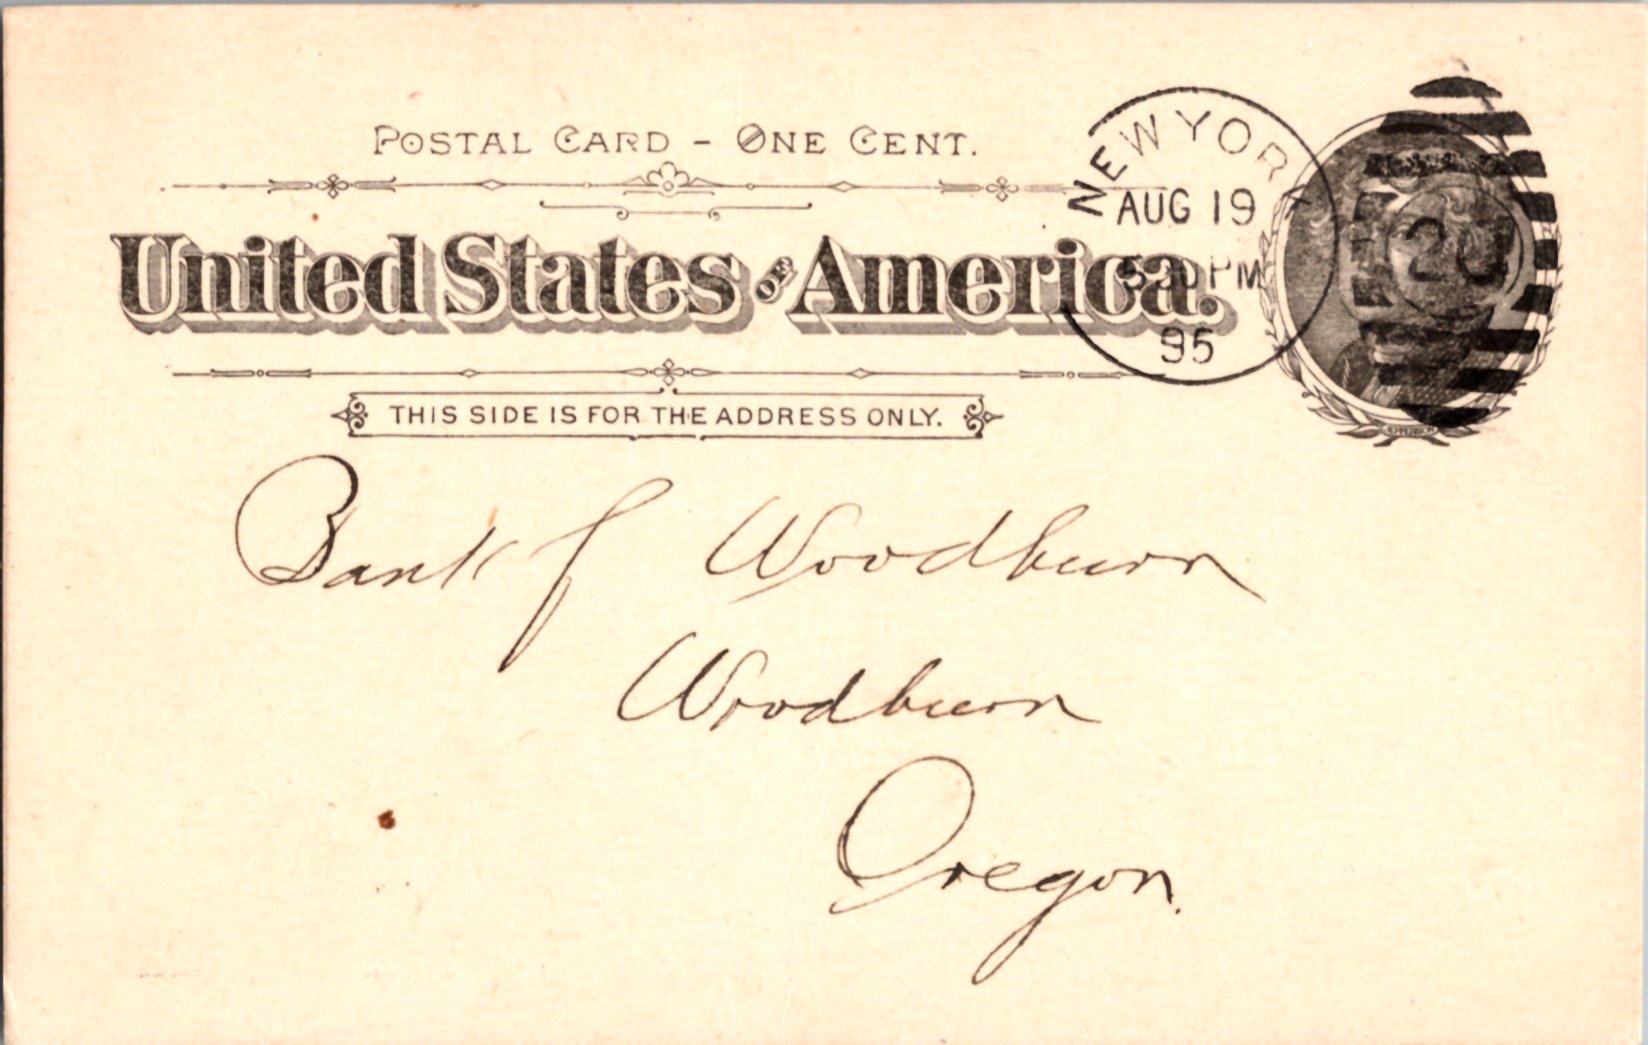 POSTAL CARD - ONE CENT.
United States of America.
NEW YORK
AUG 19
530 PM
95
20
THIS SIDE IS FOR THE ADDRESS ONLY.
JEFFERSON
Bank of Woodburn
Woodburn
Oregon.